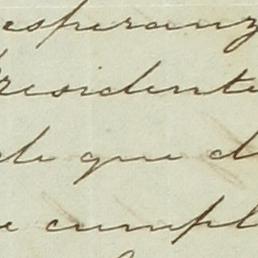 esperanz
Presidente
de que d
e cumpl